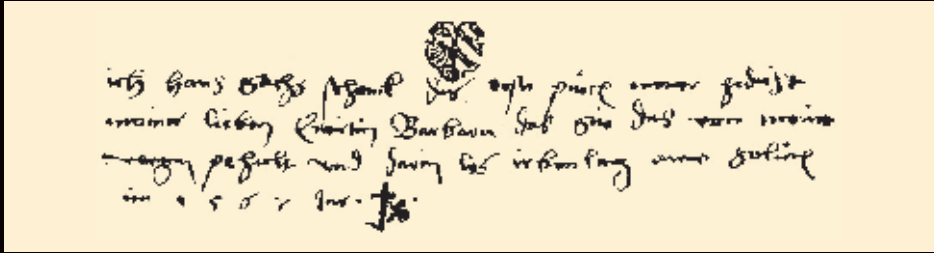 ich hans sachs schenck das erst puech meiner gedicht
meiner lieben Ewirtin Barbara das sie das von meint
wegen pehalt und darin les ir lenlang
im 1 5 6 Jar